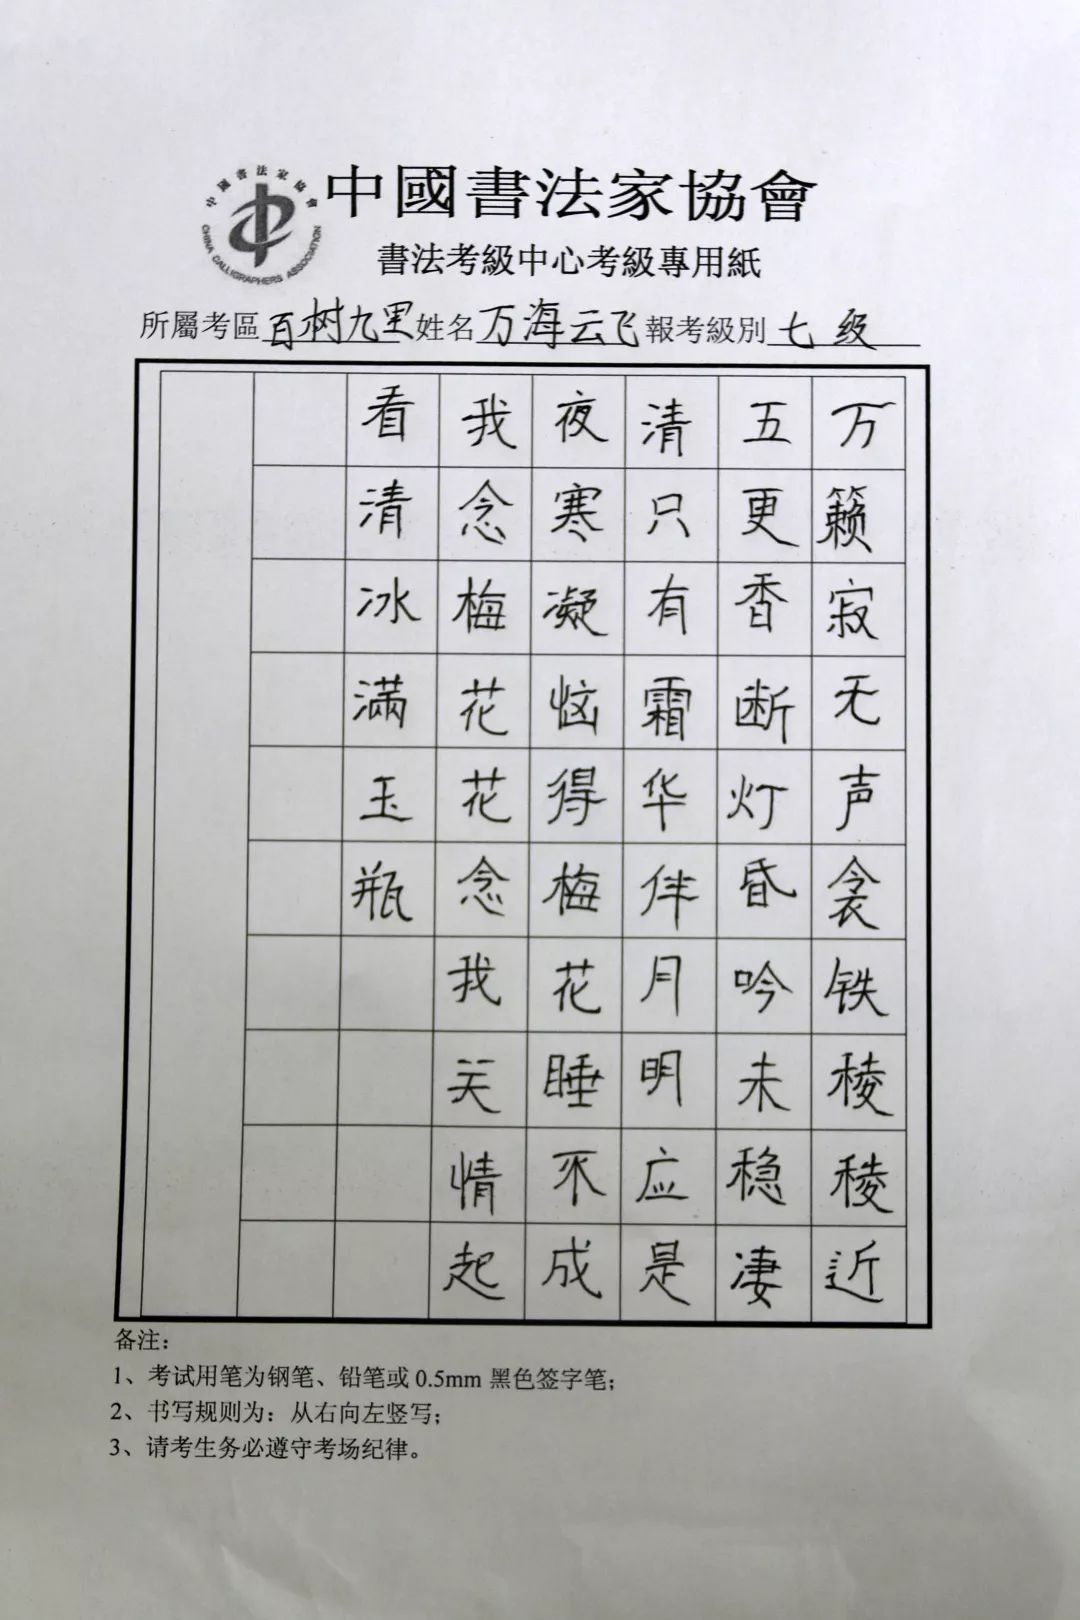 中國書法家協會
CHINA CALLIGRAPHERS ASSOCIATION
中國書法家協會
書法考級中心考級專用紙
所屬考區百树九里姓名万海云飞報考級別七级
万籁寂无声衾铁稜稜近
五更香断灯昏吟未稳凄
清只有霜华伴月明应是
夜寒凝恼得梅花睡不成
我念梅花花念我关情起
看清冰满玉瓶
备注：
1、考试用笔为钢笔、铅笔或0.5mm 黑色签字笔；
2、书写规则为：从右向左竖写；
3、请考生务必遵守考场纪律。